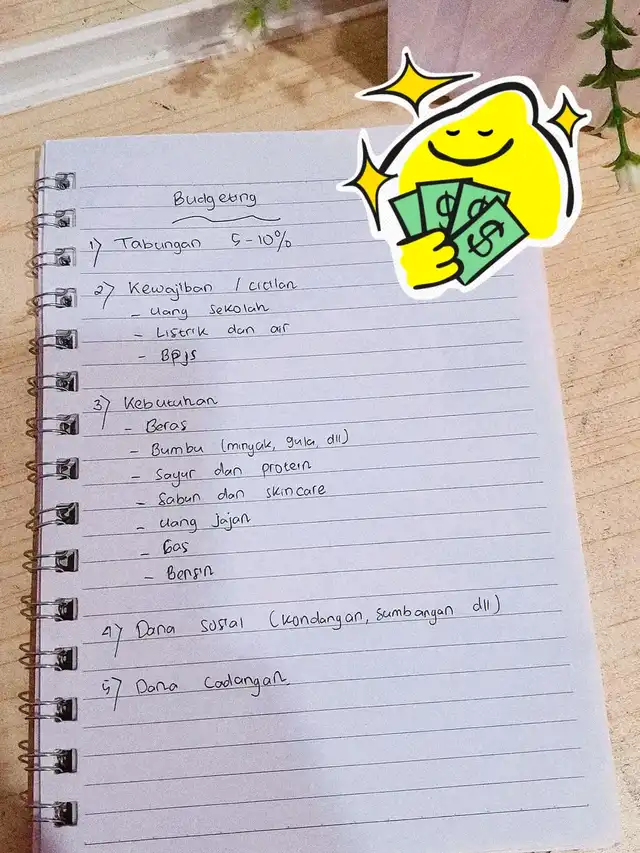 Budgeting
1) Tabungan 5-10%
2) Kewajiban / cicilan
- Uang sekolah
- Listrik dan air
- Bpjs
3) Kebutuhan
- Beras
- Bumbu (minyak, gula, dll)
- Sayur dan protein
- Sabun dan skincare
- Uang jajan
- Gas
- Bensin
4) Dana sosial (kondangan, sumbangan dll)
5) Dana cadangan